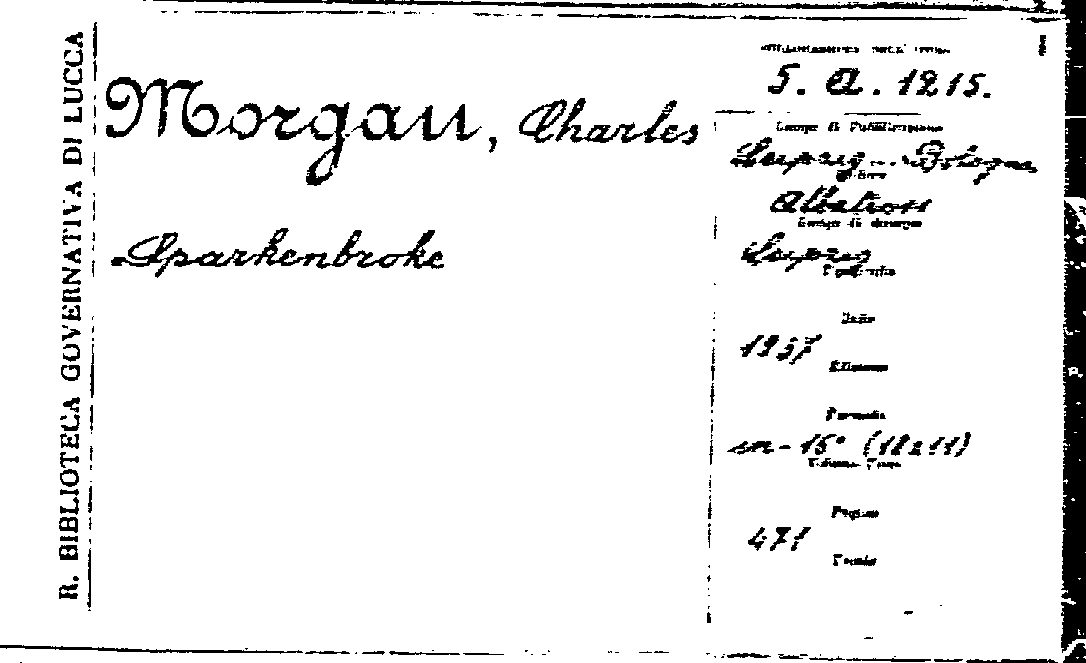 R. BIBLIOTECA GOVERNATIVA DI LUCCA
Morgan, Charles
Sparkenbroke
5. a. 1215.
Luogo di Pubblicazione
Leipzig - Bologna
Editore
Albatross
Luogo di stampa
Leipzig
Tipografia
Data
1937
Edizione
Formato
in-16° (18x11)
Volume
Pagine
471
Tavole